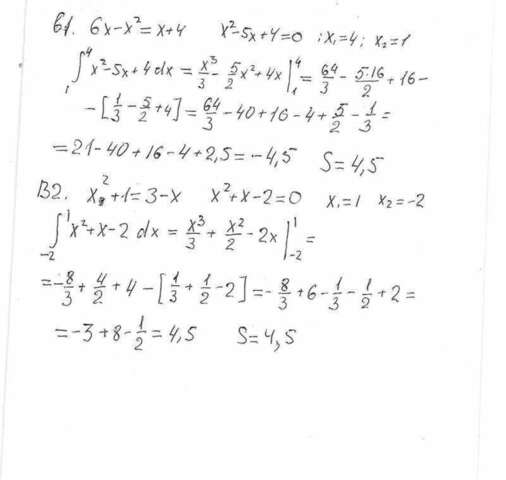 В1. 6x-x²=x+4 x²-5x+4=0 ; x₁=4; x₂=1
∫₁⁴ x²-5x+4 dx = x³/3 - 5/2 x²+4x |₁⁴ = 64/3 - 5·16/2 + 16 -
- [1/3 - 5/2 + 4] = 64/3 - 40+16-4+ 5/2 - 1/3 =
= 21-40+16-4+2,5=-4,5 S=4,5
В2. x²+1=3-x x²+x-2=0 x₁=1 x₂=-2
∫₋₂¹ x²+x-2 dx = x³/3 + x²/2 - 2x |₋₂¹ =
=-8/3 + 4/2 + 4 - [1/3 + 1/2 - 2] = - 8/3 + 6 - 1/3 - 1/2 + 2 =
= -3+8- 1/2 = 4,5 S=4,5